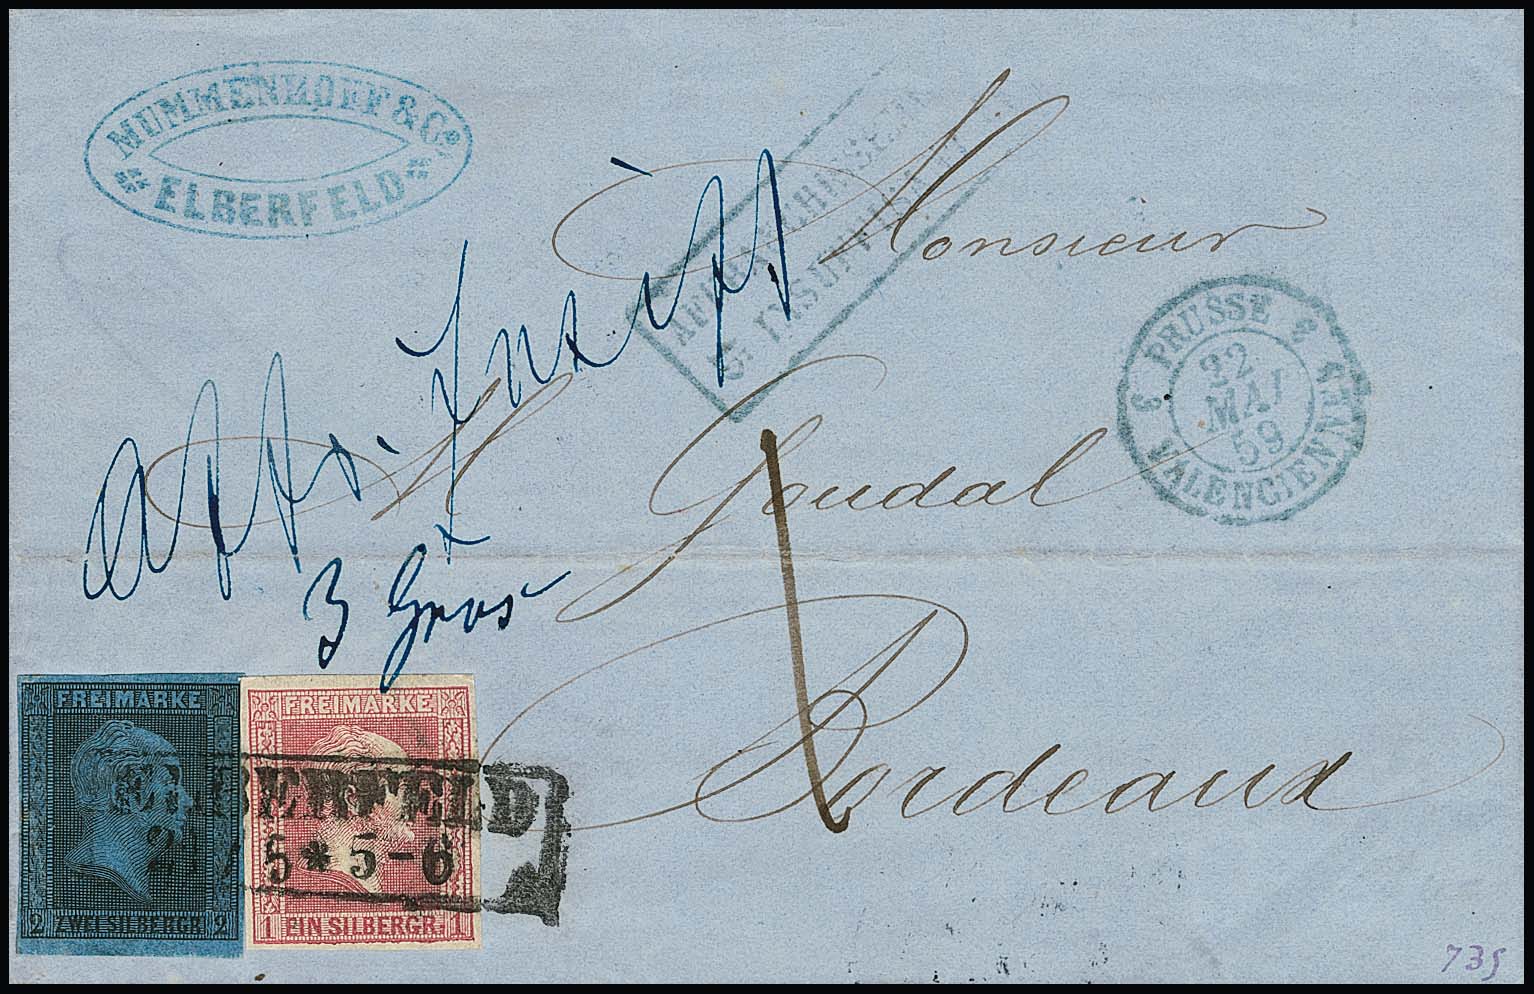 MUMMENHOFF & Co.
* ELBERFELD *
Monsieur
PRUSSE 3
22
MAI
59
3 VALENCIENNES
M Goudal
3 Gros
Bordeaux
FREIMARKE
2 ZWEI SILBERGR. 2
FREIMARKE
1 EIN SILBERGR. 1
ELBERFELD
5 * 5-6
735